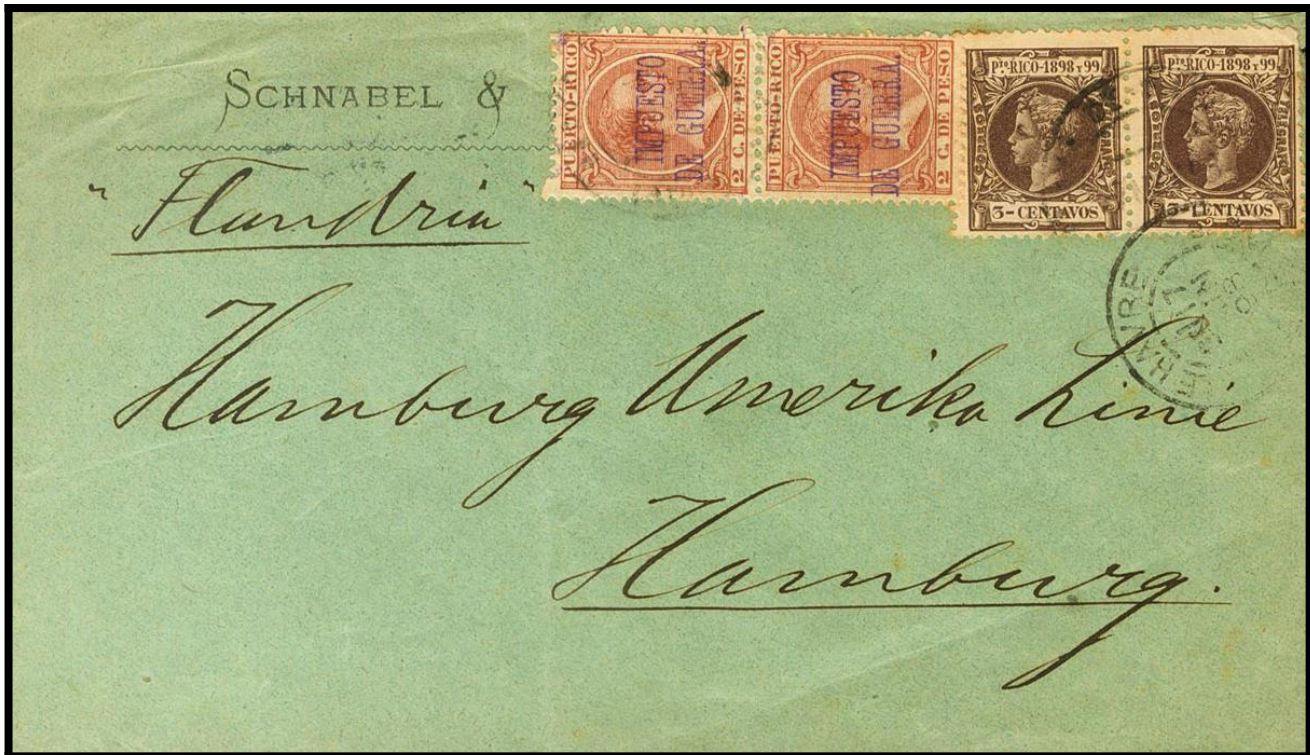 SCHNABEL &
"Flandria"
PUERTO-RICO
IMPUESTO
DE GUERRA.
2 C. DE PESO
PUERTO-RICO
IMPUESTO
DE GUERRA.
2 C. DE PESO
Pto RICO-1898 Y 99
3-CENTAVOS
Pto RICO-1898 Y 99
3-CENTAVOS
Hamburg Amerika Linie
Hamburg.